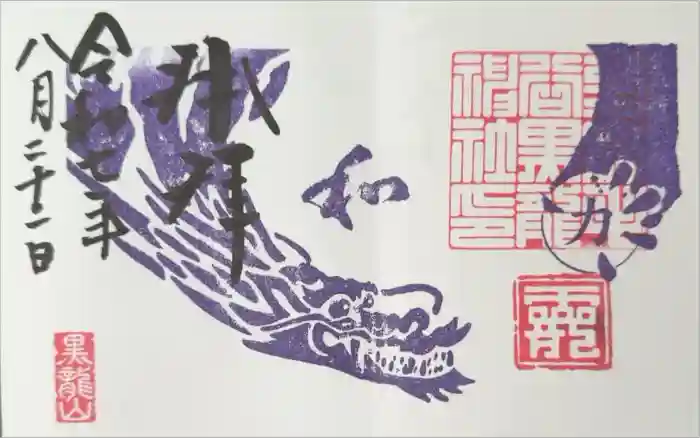 黒龍
神社印
和
奉拝
令和七年
八月二十一日
黒龍山